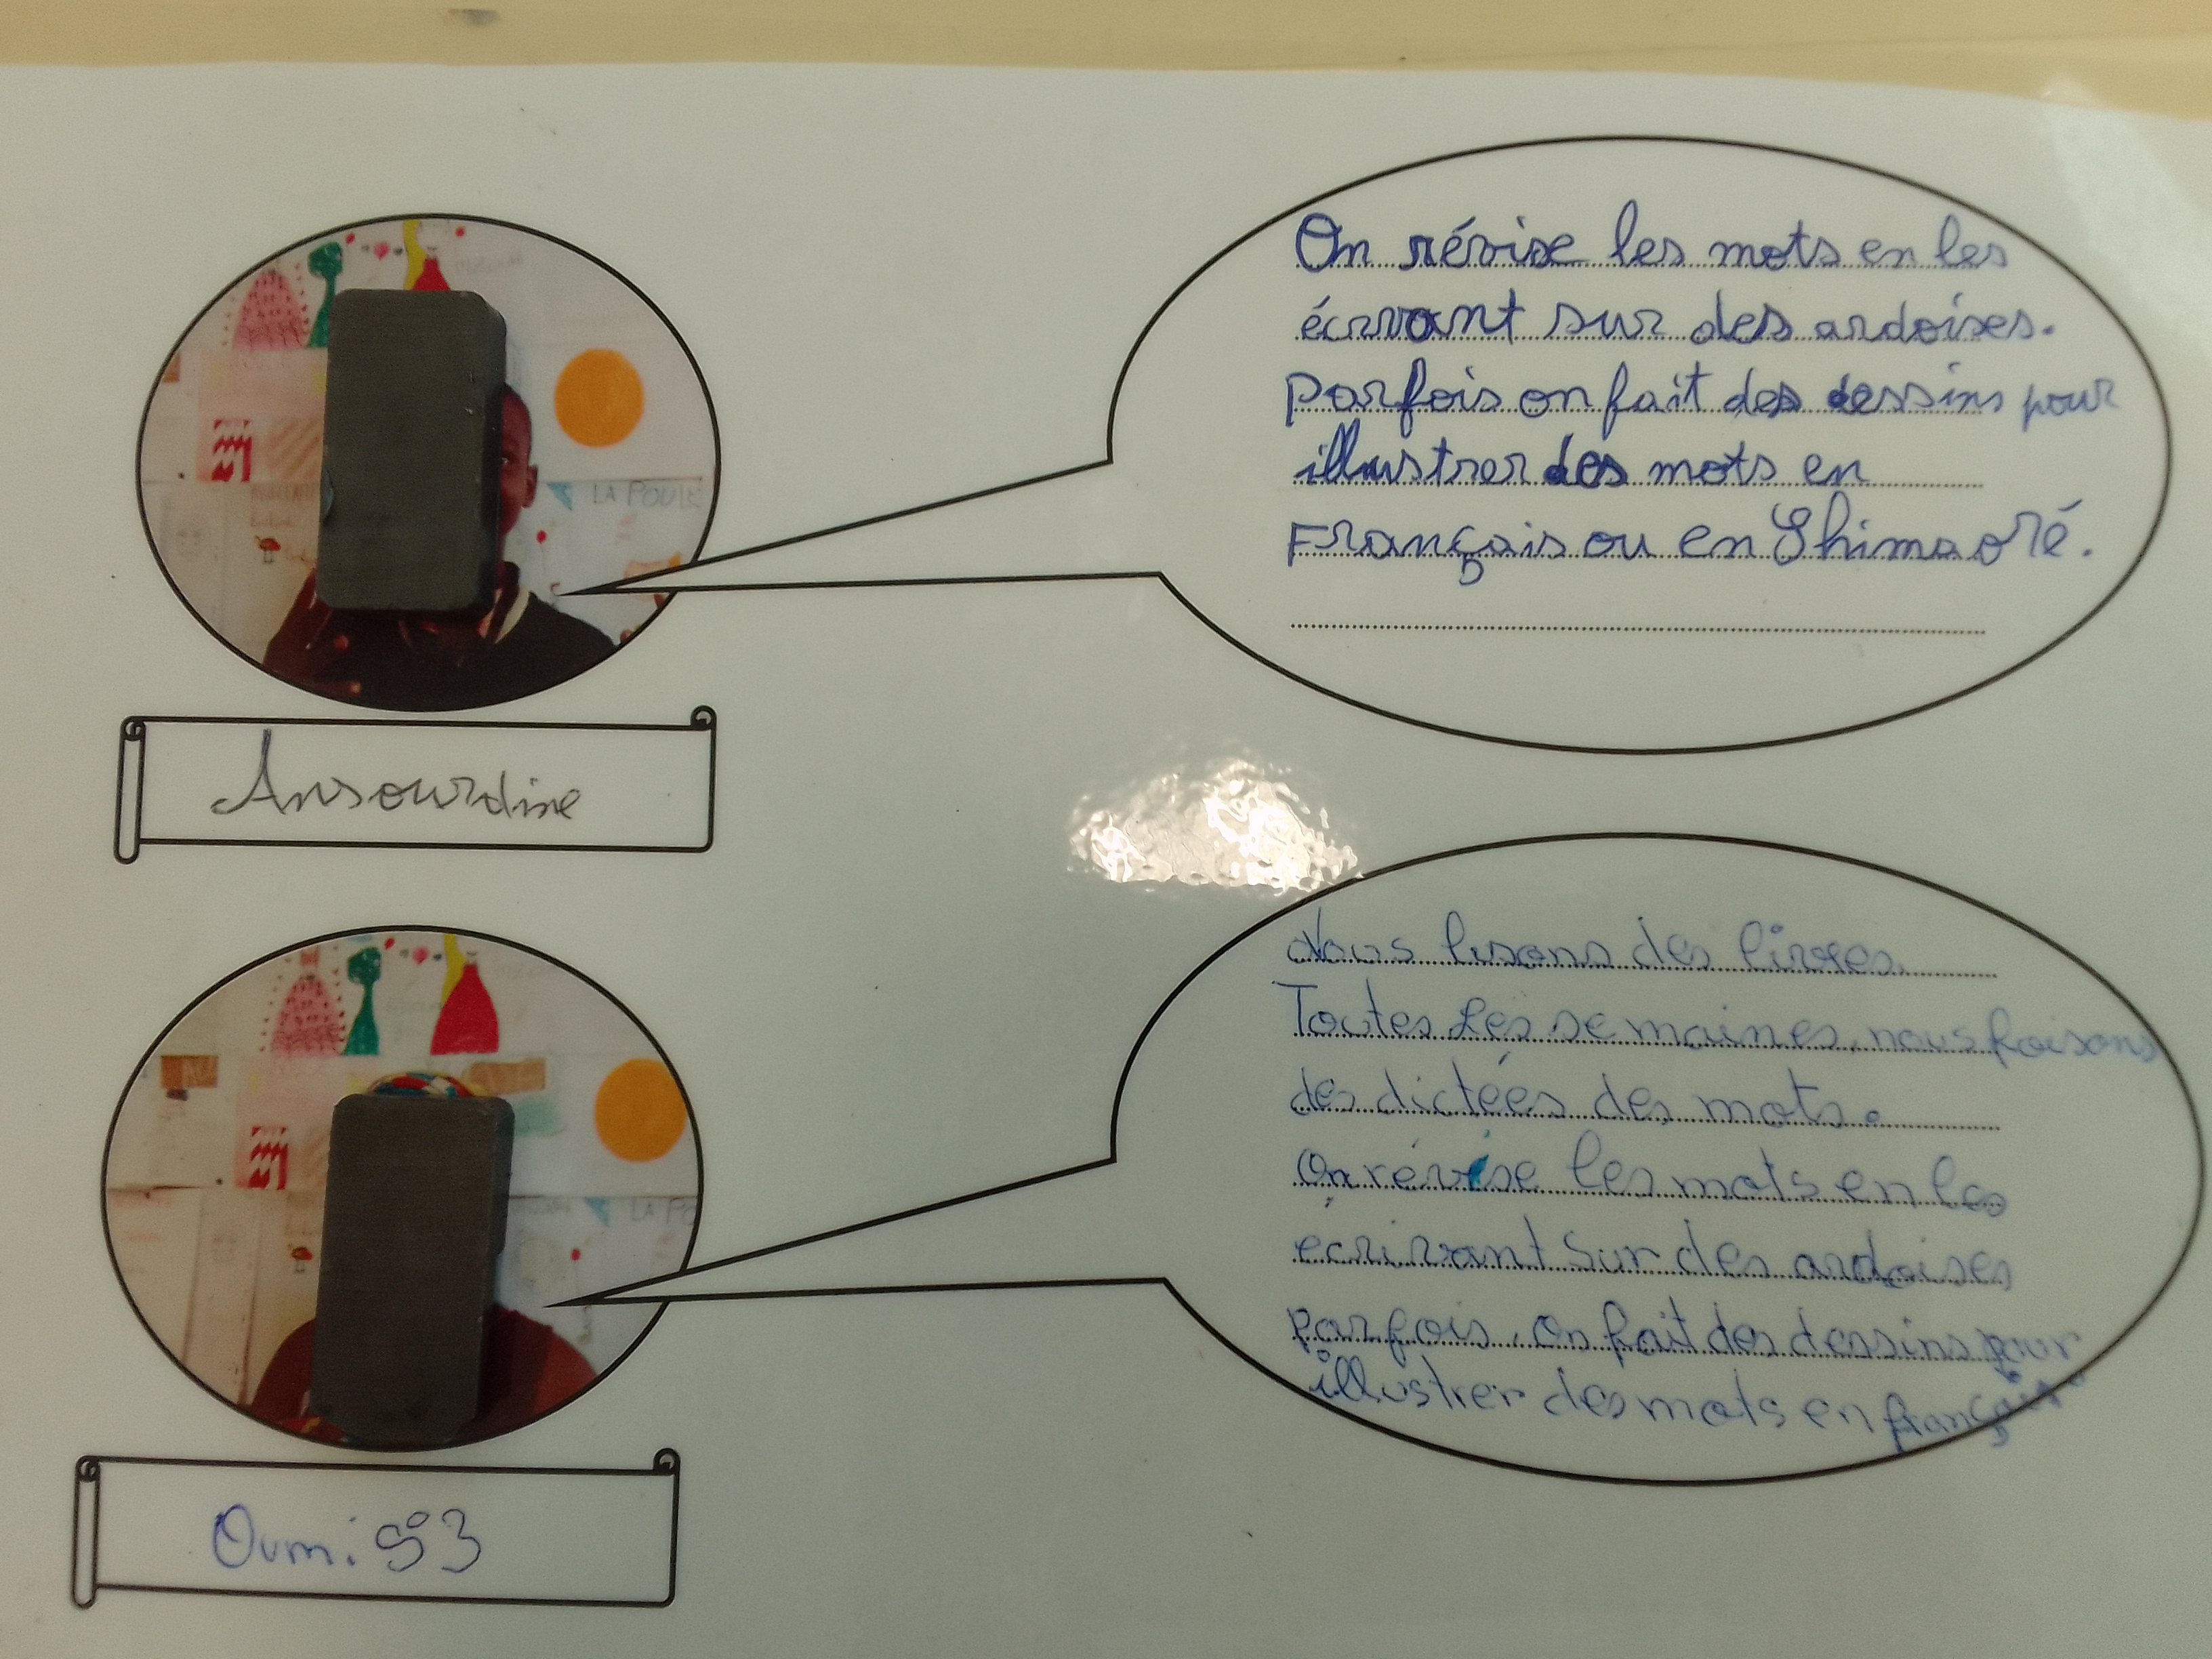 On révise les mots en les
écrivant sur des ardoises.
Parfois on fait des dessins pour
illustrer des mots en
Français ou en Shimaoré.
LA POULE
Ansourdine
Nous lisons des livres.
Toutes les semaines, nous faisons
des dictées des mots.
On révise les mots en les
écrivant sur des ardoises
Parfois, on fait des dessins pour
illustrer des mots en français
LA PO
Oumi